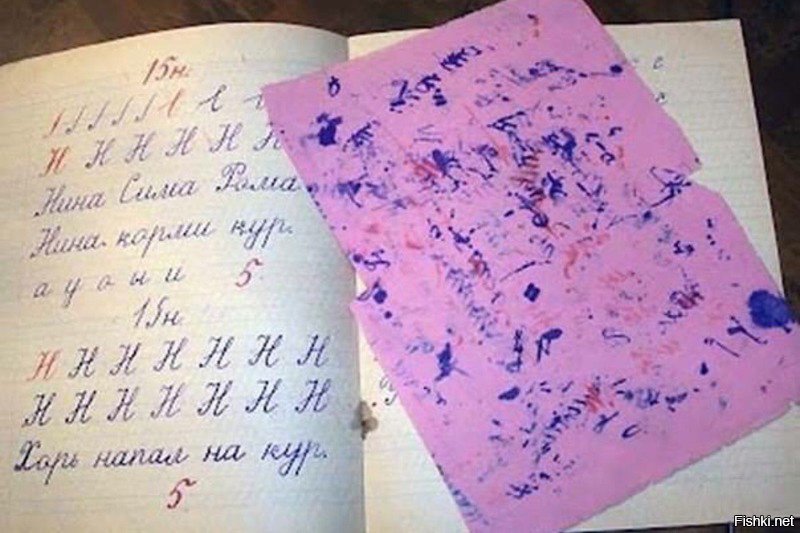 15н.
Н Н Н Н Н Н
Нина Сима Рома
Нина корми кур.
а у о ы и 5
15н
Н Н Н Н Н Н Н
Н Н Н Н Н Н Н
Хорь напал на кур.
5
с
Fishki.net